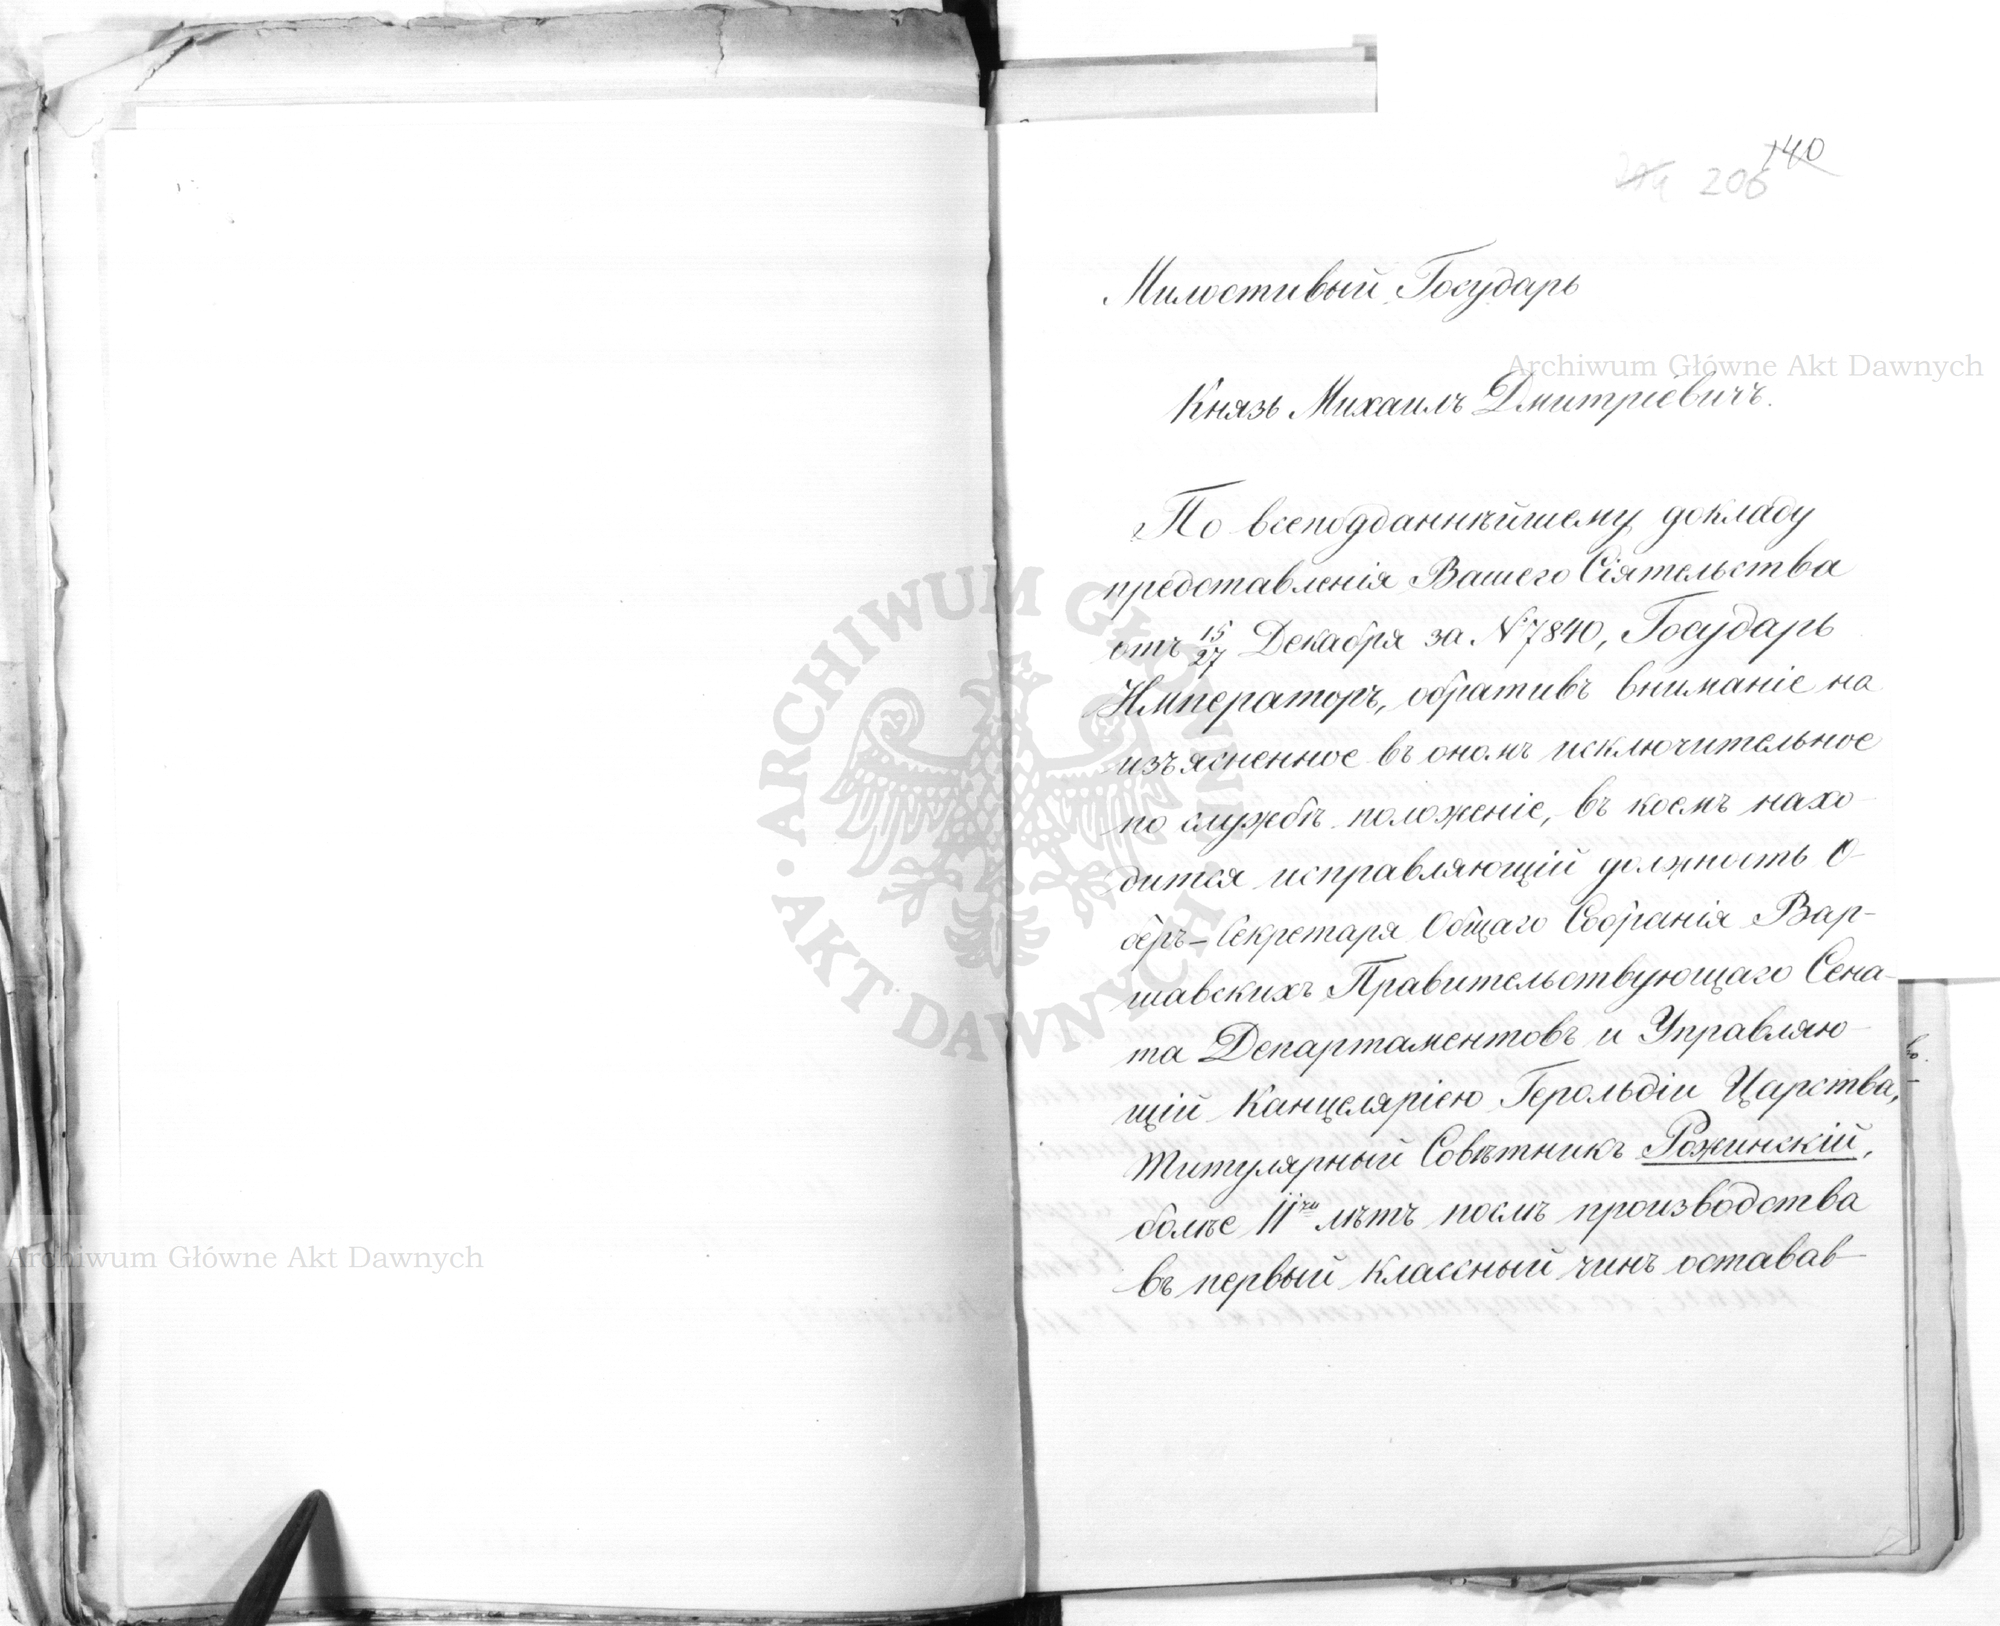 140
206
Милостивый Государь
Archiwum Główne Akt Dawnych
Князь Михаилъ Дмитріевичъ.
По всеподданнѣйшему докладу
представленія Вашего Сіятельства
отъ 15/27 Декабря за №7840, Государь
Императоръ, обративъ вниманіе на
изъясненное въ ономъ исключительное
по службѣ положеніе, въ коемъ нахо-
дится исправляющій должность О-
беръ-Секретаря Общаго Собранія Вар-
шавскихъ Правительствующаго Сена-
та Департаментовъ и Управляю-
щій Канцеляріею Герольдіи Царства,
Титулярный Совѣтникъ Рожинскій,
болѣе 11ти лѣтъ послѣ производства
въ первый классный чинъ оставав-
ARCHIWUM GŁÓWNE · AKT DAWNYCH ·
Archiwum Główne Akt Dawnych